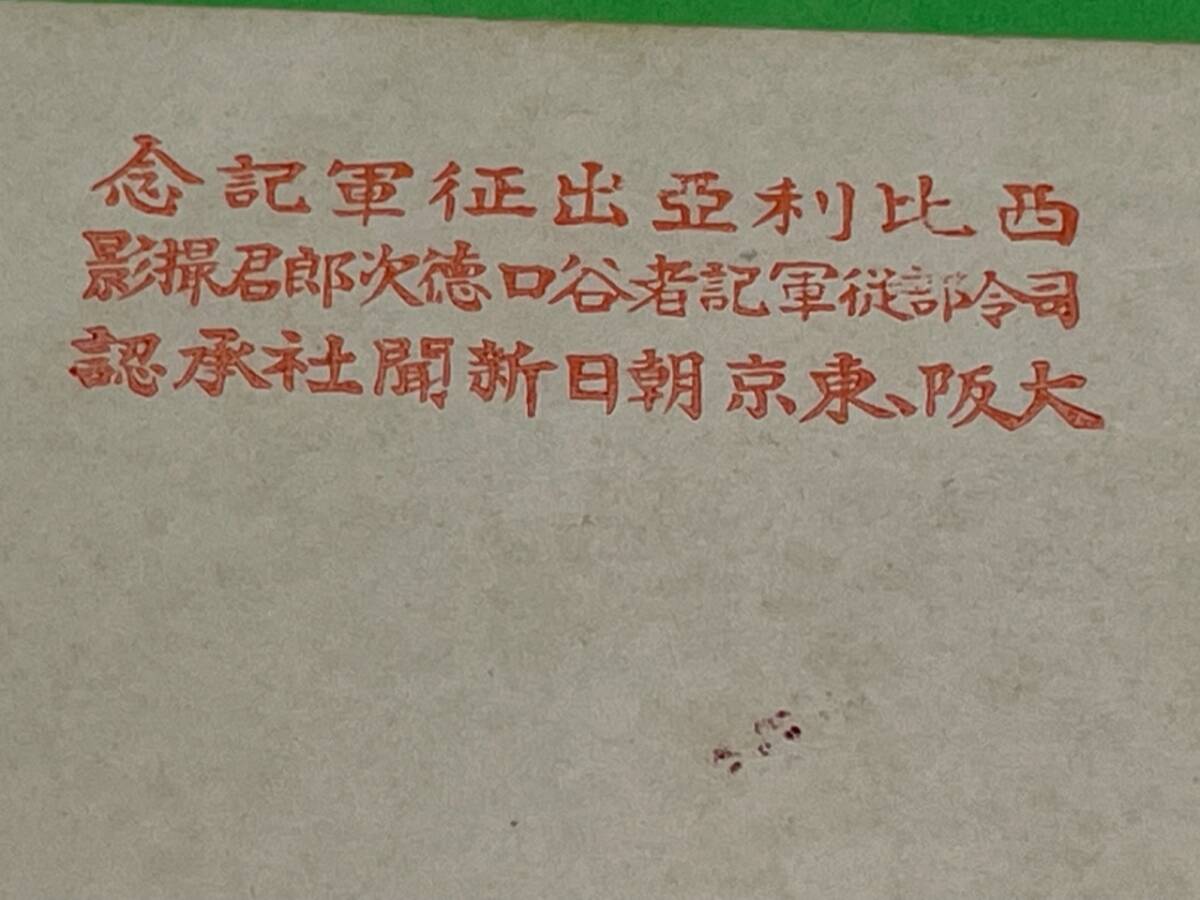 西比利亞出征軍記念
司令部從軍記者谷口德次郎君撮影
大阪、東京朝日新聞社承認